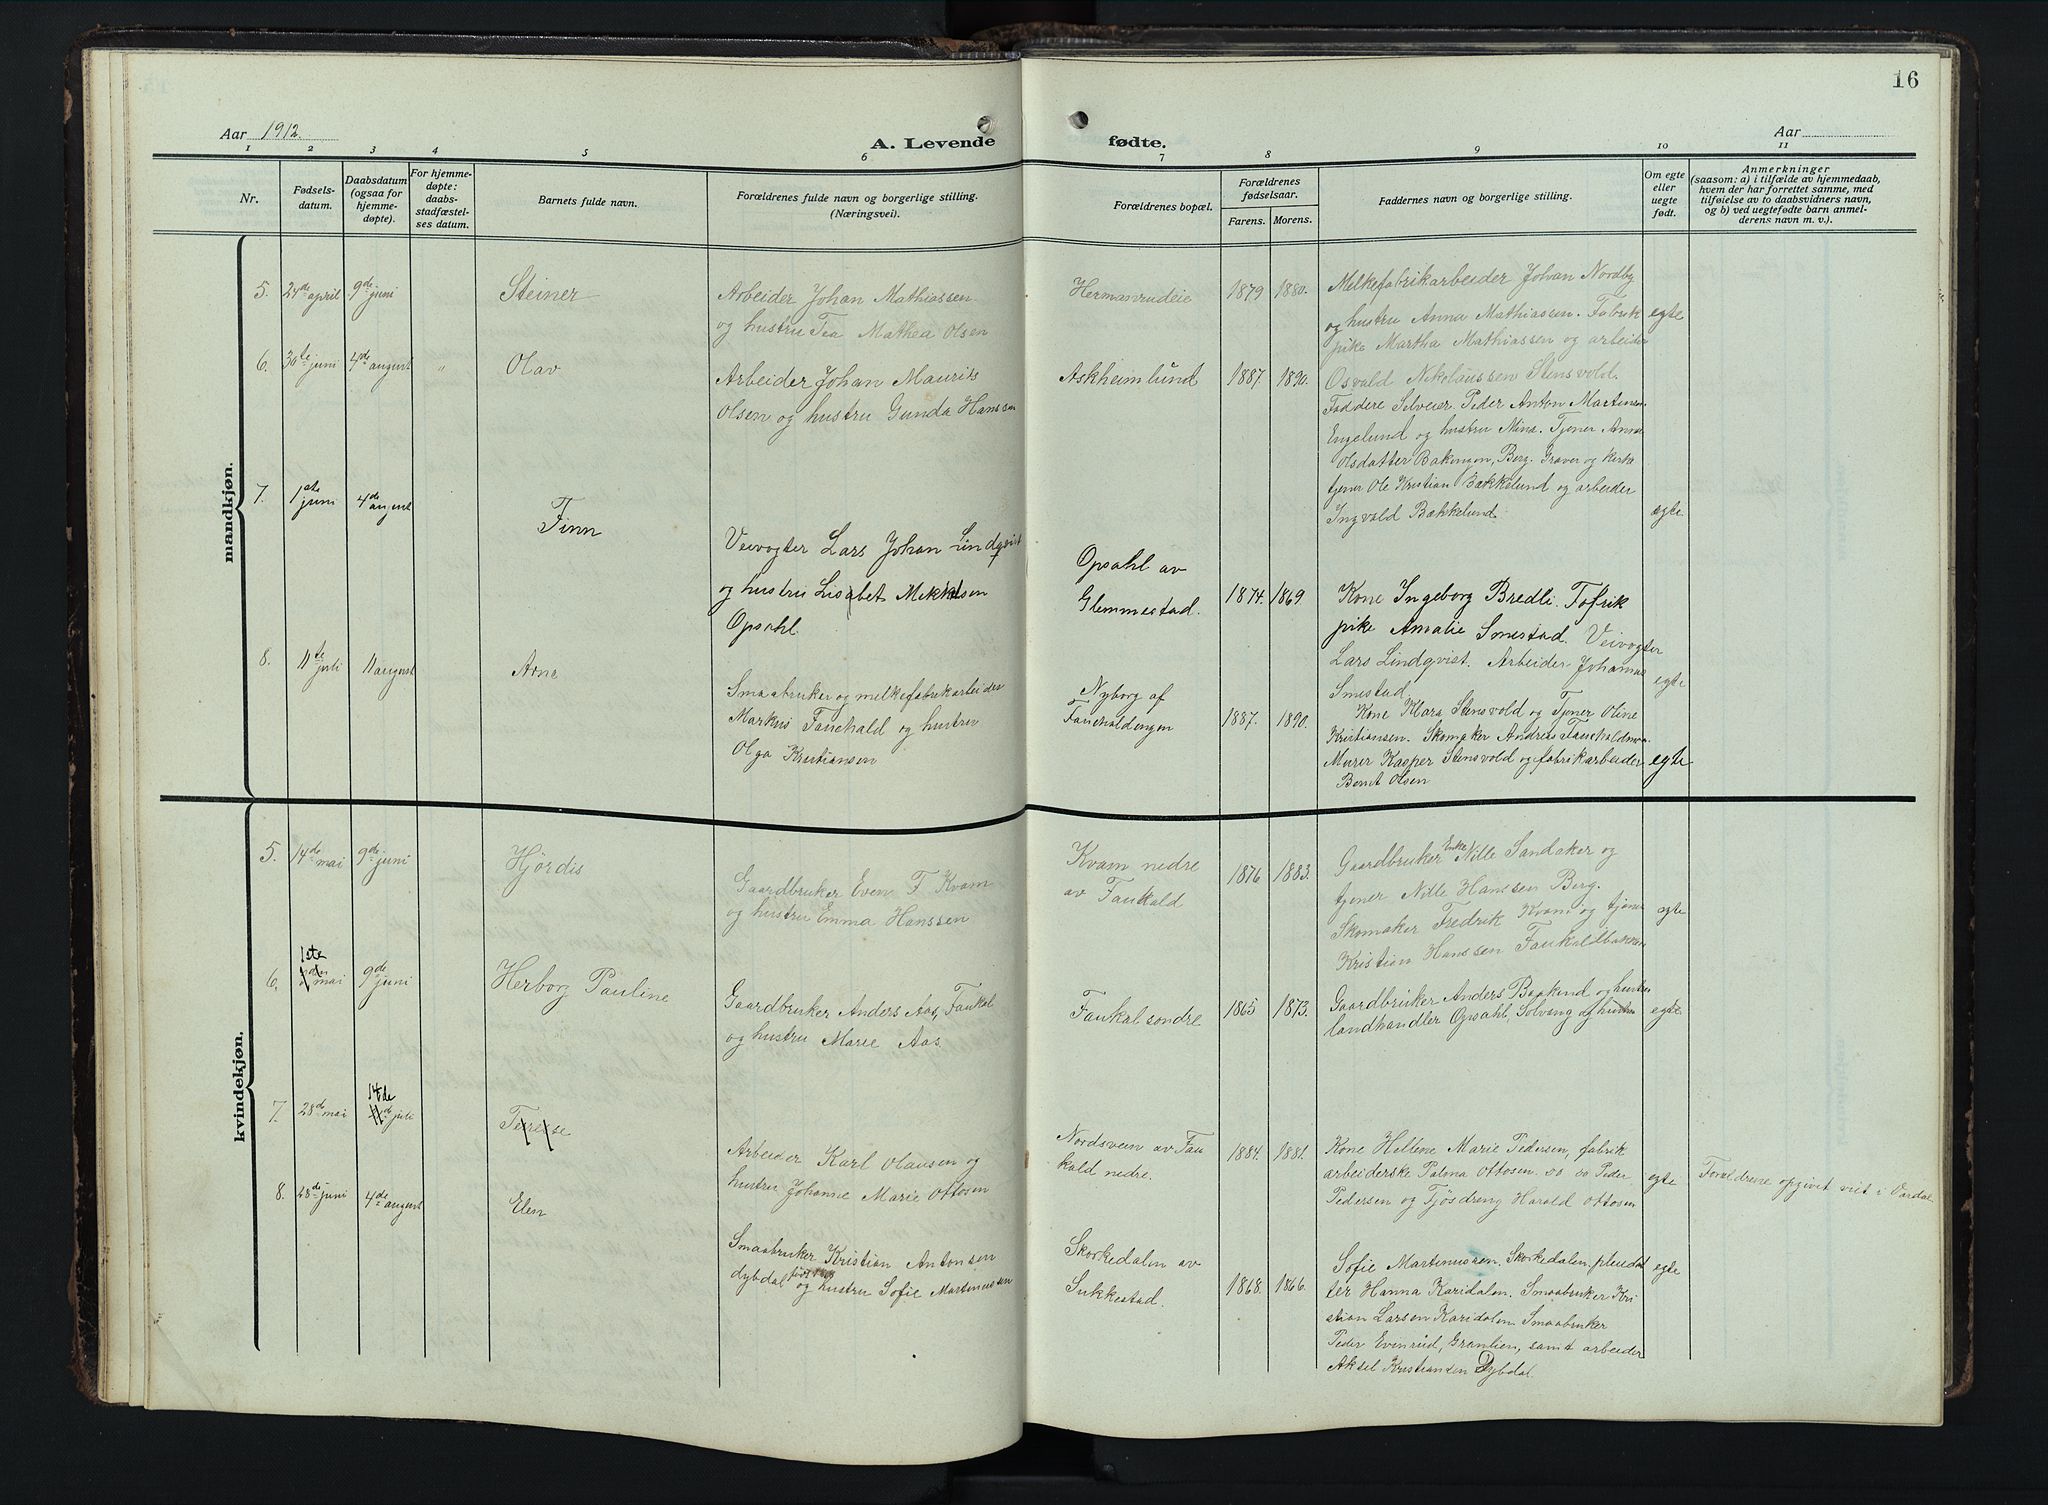 16
Aar 1912.
A. Levende
fødte.
Aar
1 2 3 4 5 6 7 8 9 10 11
Nr.
Fødsels-
datum.
Daabsdatum
(ogsaa for
hjemme-
døpte).
For hjemme-
døpte:
daabs-
stadfæstel-
ses datum.
Barnets fulde navn.
Forældrenes fulde navn og borgerlige stilling.
(Næringsvei).
Forældrenes bopæl.
Forældrenes
fødselsaar.
Farens. Morens.
Faddernes navn og borgerlige stilling.
Om egte
eller
uegte
født.
Anmerkninger
(saasom: a) i tilfælde av hjemmedaab,
hvem der har forrettet samme, med
tilføielse av to daabsvidners navn,
og b) ved uegtefødte barn anmel-
derens navn m. v.).
mandkjøn.
5. 24de april 9de juni
Steiner
Arbeider Johan Mathiassen
og hustru Tea Mathea Olsen
Hermanrudeie
1879 1880.
Melkefabrikarbeider Johan Nordby
og hustru Anna Mathiassen. Fabrik
pike Martha Mathiassen og arbeider
Osvald Nikolaussen Stensvold.
egte
6. 30te juni 4de august "
Olav
Arbeider Johan Maurits
Olsen og hustru Gunda Hanssen
Askheimlund
1887. 1890.
Faddere Selveier Peder Anton Martinsen
Engelund og hustru Mina. Tjener Anna
Olsdatter Bakengen, Berg. Graver og kirke
tjener Ole Kristian Bækkelund og arbeider
Ingvald Bækkelund.
ægte
7. 1ste juni 4de august
Finn
Veivogter Lars Johan Lindqvist
og hustru Lisabet Mekkelsen
Opsahl
Opsahl av
Glemmestad.
1874. 1869.
Kone Ingeborg Bredli. Fabrik
pike Amalie Smestad. Veivogter
Lars Lindqvist. Arbeider Johannes
Smestad
egte
8. 11te juli 11 august
Arne
Smaabruker og melkefabrikarbeider
Markus Fauchald og hustru
Olga Kristiansen
Nyborg af
Fauchaldengen
1887. 1890.
Kone Klara Stensvold og Tjener Oline
Kristiansen. Skomaker Andreas Fauchald
Murer Kasper Stensvold og fabrikarbeider
Bernt Olsen
egte
kvindekjøn.
5. 14de mai 9de juni
Hjørdis
Gaardbruker Even F Kvam
og hustru Emma Hanssen
Kvam nedre
av Faukald
1876 1883.
Gaardbruker Enke Nille Sandaker og
tjener Nille Hanssen Berg.
Skomaker Fredrik Kvam og tjener
Kristian Hanssen Faukaldbakken
egte
6. 1ste mai 9de juni
Herborg Pauline
Gaardbruker Anders Aas, Faukal
og hustru Marie Aas.
Faukal søndre
1865 1873.
Gaardbruker Anders Baaklund og hustru
landhandler Opsahl, Solvang og hustru
egte
7. 28de mai 14de juli
Terese
Arbeider Karl Olausen og
hustru Johanne Marie Ottosen
Nordsveen av Fau
kald nedre.
1884. 1881.
Kone Hellene Marie Pedersen, fabrik
arbeiderske Palma Ottosen. do do Peder
Pedersen og Fjøsdreng Harald Ottosen
egte
Forældrene opgivet viet i Vardal
8. 28de juni 4de august
Elen
Smaabruker Kristian Antonsen
dybdal og hustru Sofie Martinussen
Skorkedalen av
Sukkestad.
1868. 1866.
Sofie Martinussen, Skorkedalen, pleiedat
ter Hanna Karidalen. Smaabruker Kri
stian Larsen Karidalen Smaabruker
Peder Evenrud, Granlien, samt arbeider
Aksel Kristiansen Dybdal.
egte